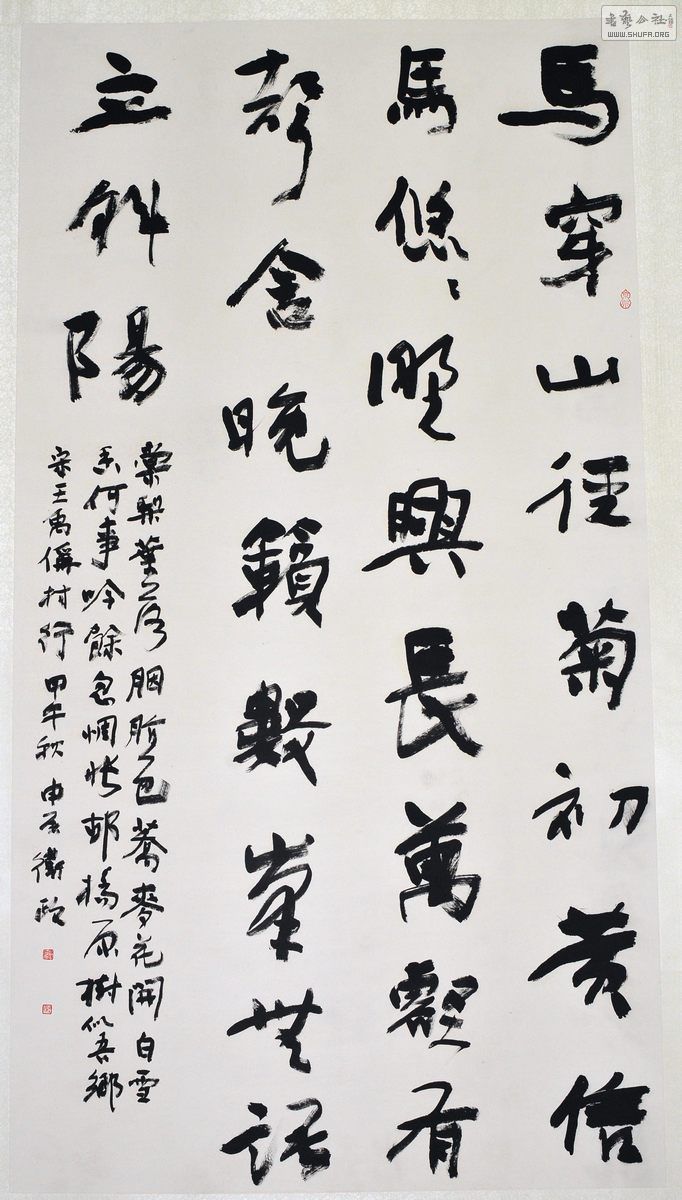 書藝公社
WWW.SHUFA.ORG
馬穿山徑菊初黄信
馬悠〻野興長萬壑有
聲含晚籟數峯無語
立斜陽
棠梨葉落胭脂色蕎麥花開白雪
香何事吟餘忽惆悵邨橋原樹似吾鄉
宋王禹偁村行甲午秋